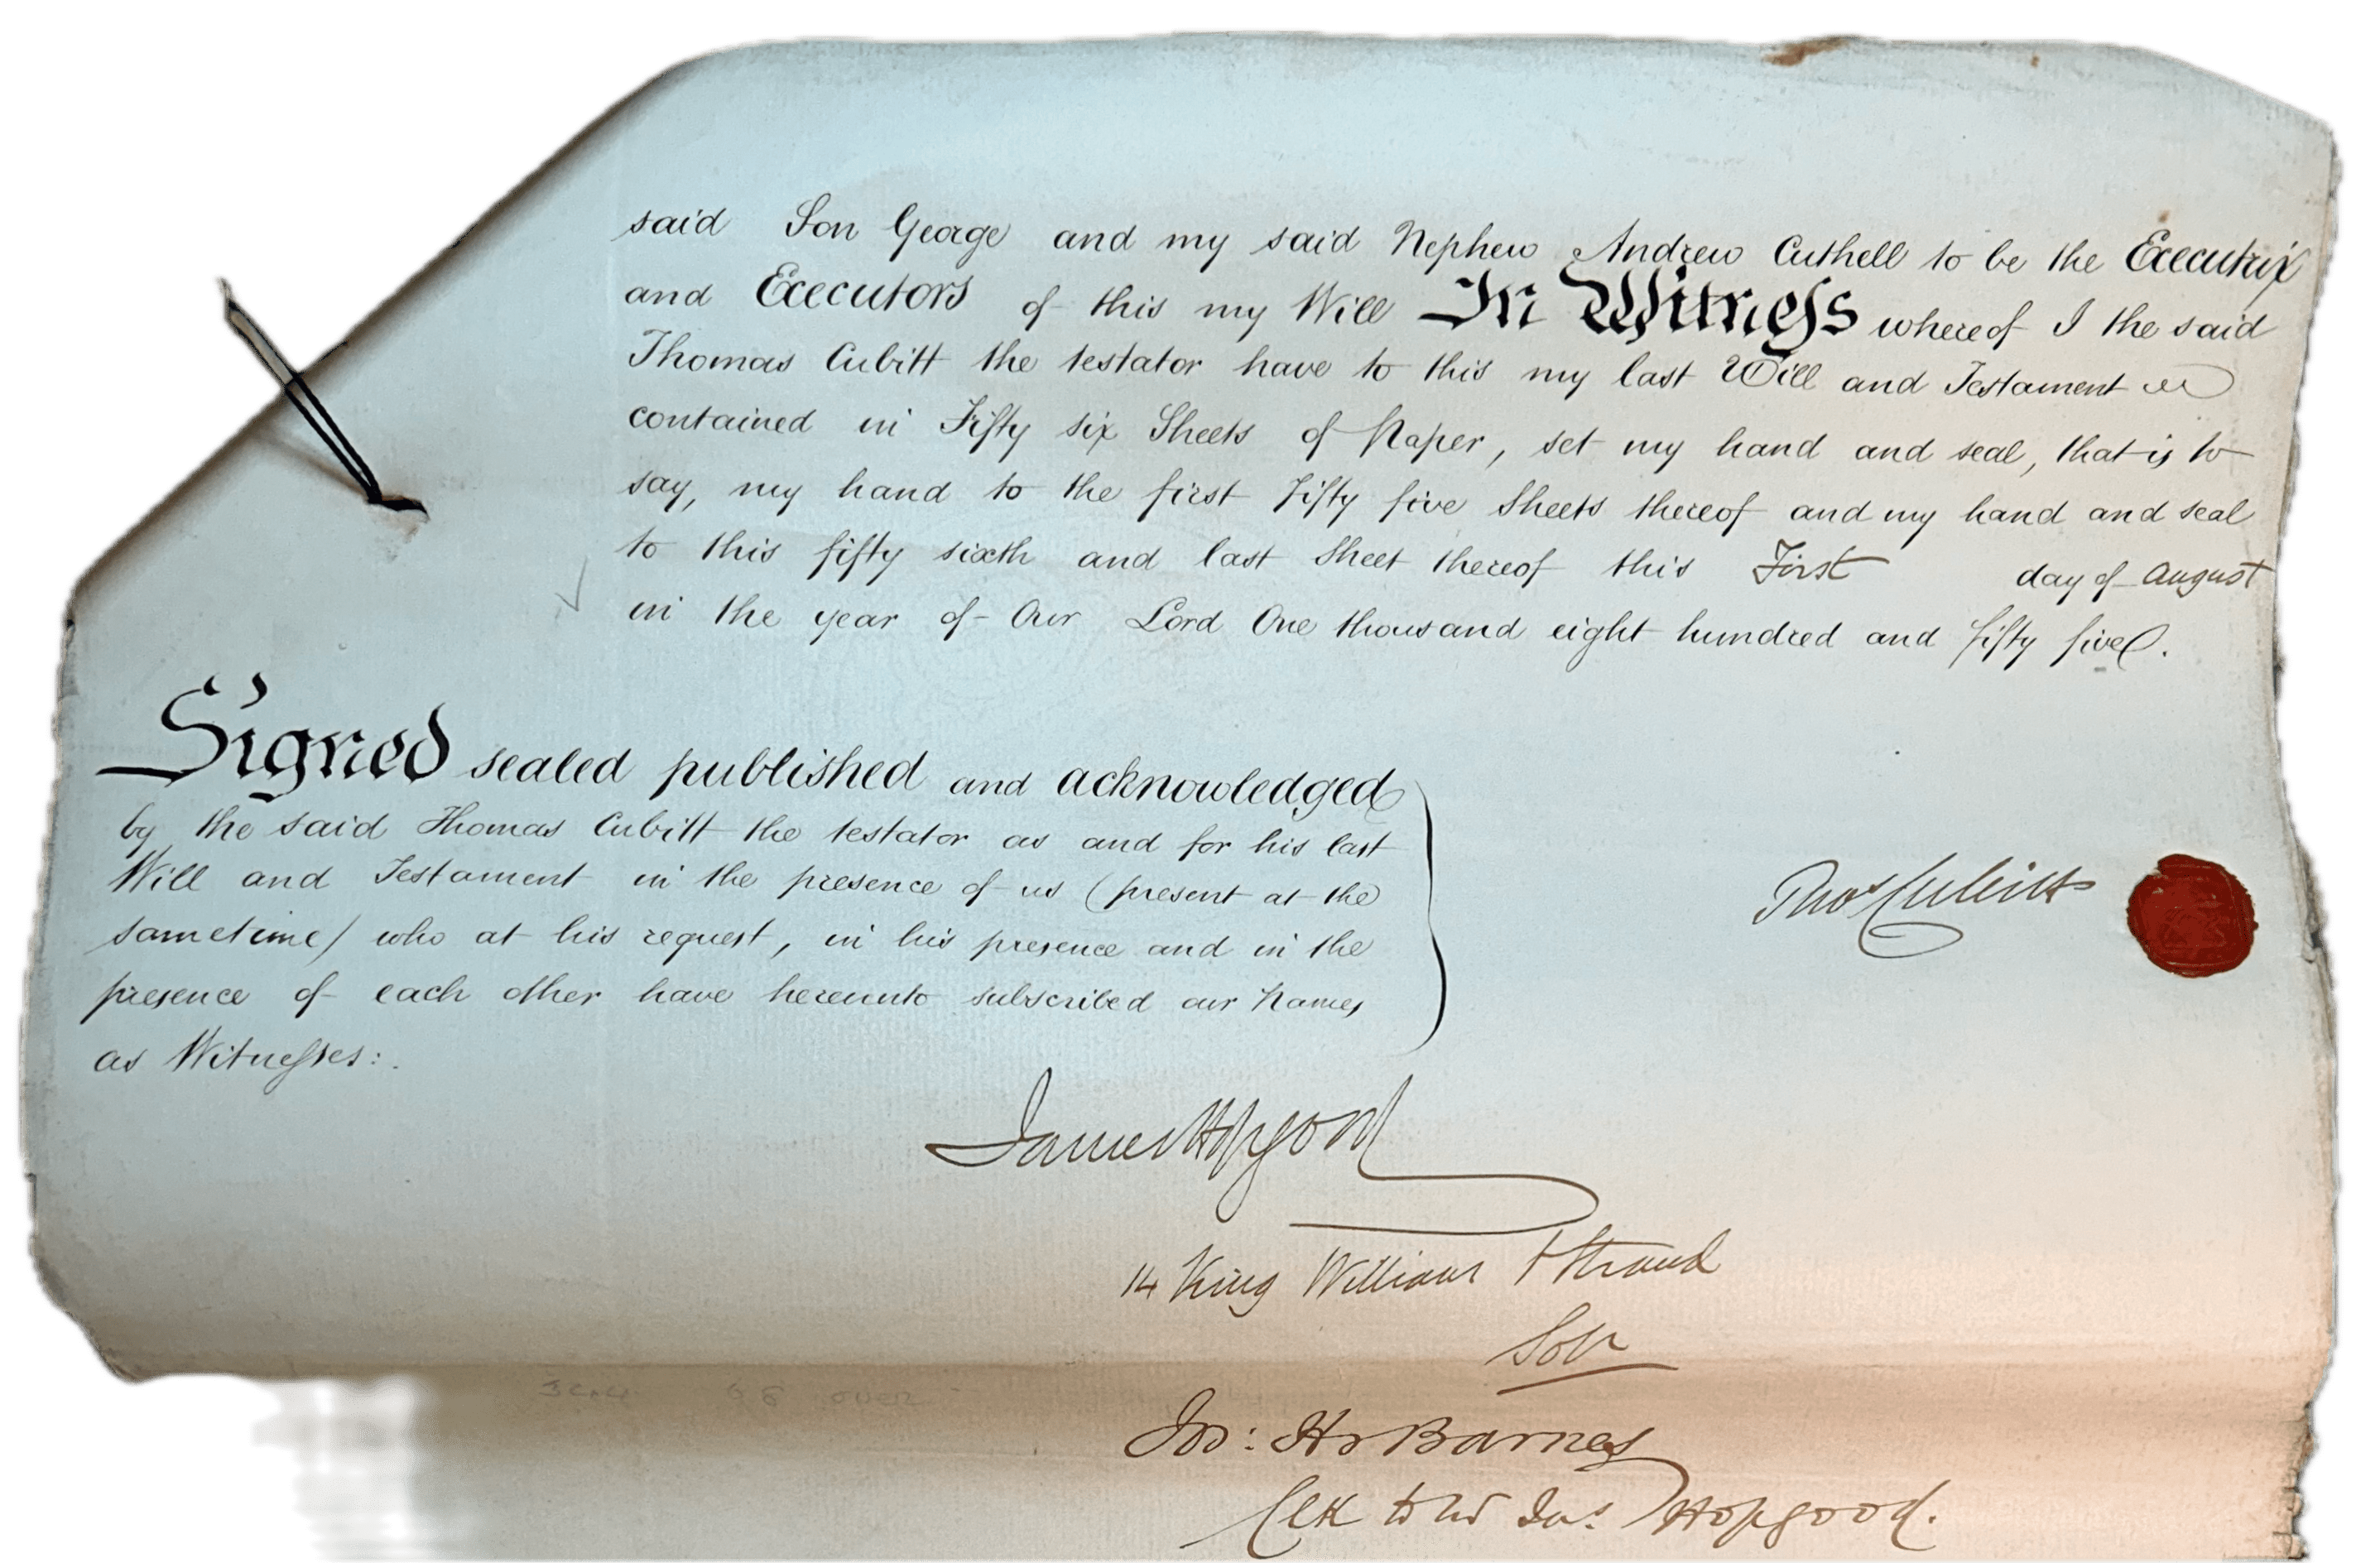 said Son George and my said Nephew Andrew Cuthell to be the Executrix
and Executors of this my Will In Witness whereof I the said
Thomas Cubitt the testator have to this my last Will and Testament
contained in Fifty six Sheets of Paper, set my hand and seal, that is to
say, my hand to the first Fifty five Sheets thereof and my hand and seal
to this fifty sixth and last Sheet thereof this First day of August
in the year of Our Lord One thousand eight hundred and fifty five.
Signed sealed published and acknowledged
by the said Thomas Cubitt the testator as and for his last
Will and Testament in the presence of us (present at the
sametime) who at his request, in his presence and in the
presence of each other have hereunto subscribed our Names
as Witnesses:.
Thos Cubitt
James Hopgood
14 King William St Strand
Solr
Jos: Hy Barnes
Clk to Mr Jas. Hopgood.